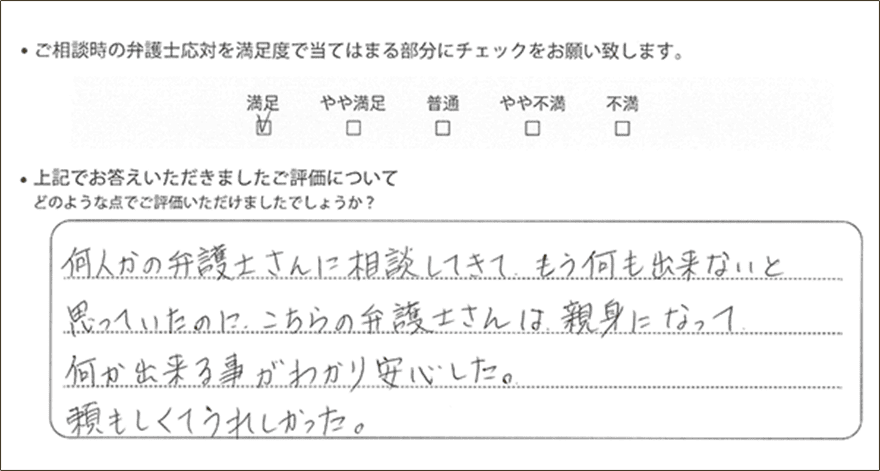 • ご相談時の弁護士応対を満足度で当てはまる部分にチェックをお願い致します。
満足 やや満足 普通 やや不満 不満
☑ □ □ □ □
• 上記でお答えいただきましたご評価について
どのような点でご評価いただけましたでしょうか？
何人かの弁護士さんに相談してきて、もう何も出来ないと
思っていたのに、こちらの弁護士さんは、親身になって、
何か出来る事がわかり安心した。
頼もしくてうれしかった。